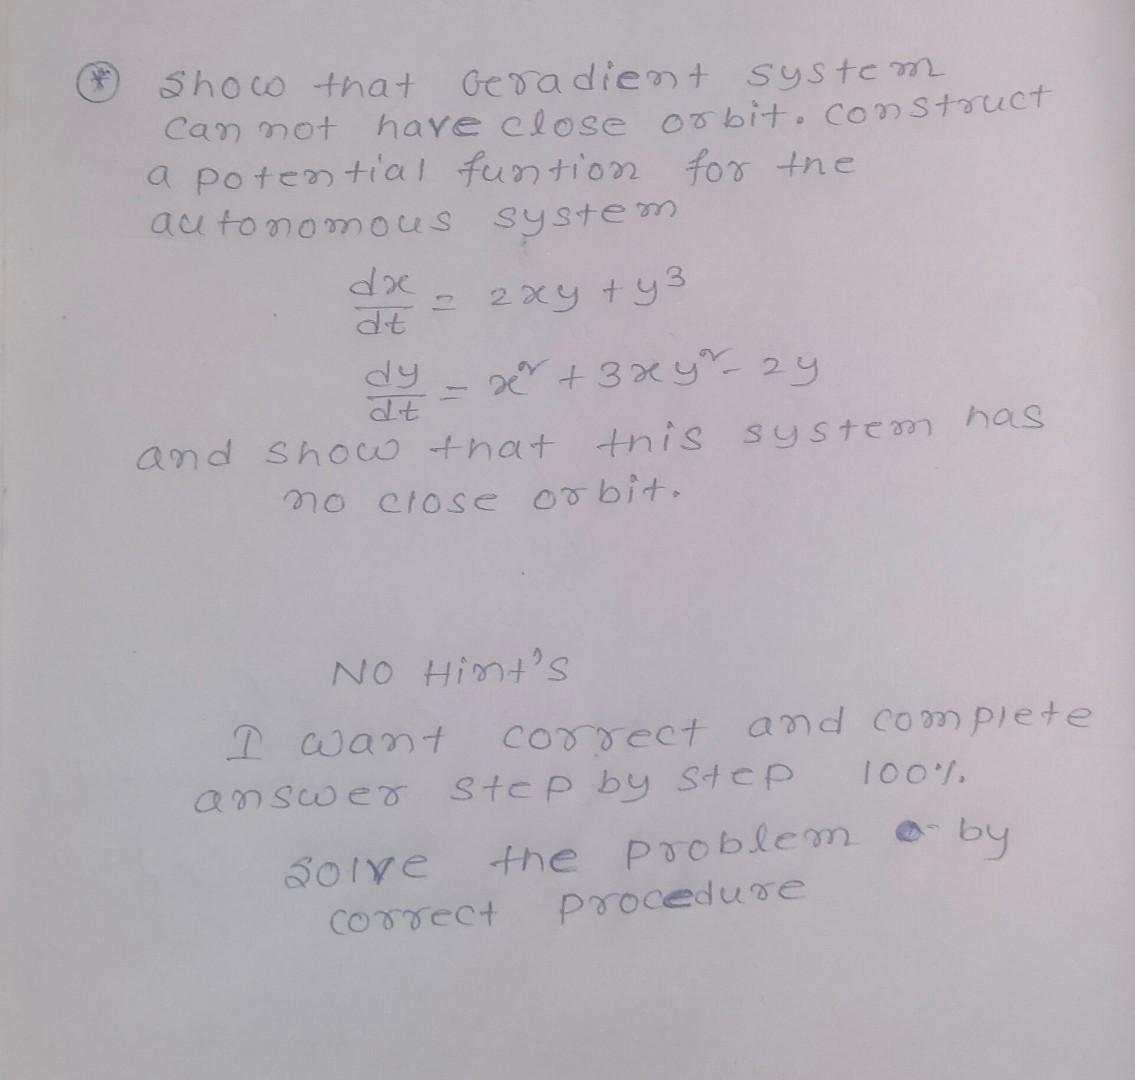 ⊛ Show that Geradient system
can not have close orbit. construct
a potential funtion for the
autonomous system
dx/dt = 2xy + y³
dy/dt = x² + 3xy² - 2y
and show that this system has
no close orbit.
NO Hint's
I want correct and complete
answer step by step 100%.
Solve the problem by
correct procedure